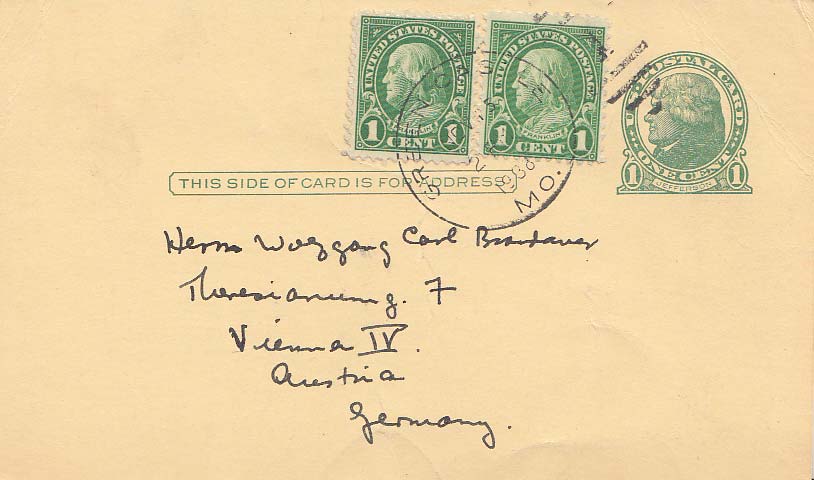 UNITED STATES POSTAGE
1 FRANKLIN 1
CENT
UNITED STATES POSTAGE
1 FRANKLIN 1
CENT
U.S. POSTAL CARD
1 ONE CENT 1
JEFFERSON
GREENCASTLE
2
1938
MO.
THIS SIDE OF CARD IS FOR ADDRESS
Herrn Wolfgang Carl
Theresianumg. 7
Vienna IV.
Austria
Germany.